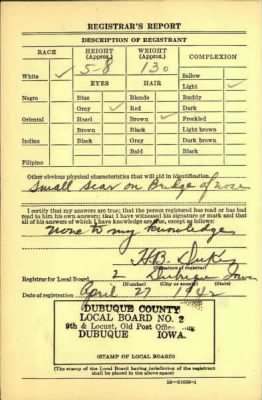 REGISTRAR'S REPORT
DESCRIPTION OF REGISTRANT
RACE HEIGHT (Approx.) WEIGHT (Approx.) COMPLEXION
White ✓ 5-8 130 Sallow
EYES HAIR Light ✓
Negro Blue Blonde Ruddy
Gray ✓ Red Dark
Oriental Hazel Brown ✓ Freckled
Brown Black Light brown
Indian Black Gray Dark brown
Bald Black
Filipino
Other obvious physical characteristics that will aid in identification
Small scar on Bridge of nose
I certify that my answers are true; that the person registered has read or has had
read to him his own answers; that I have witnessed his signature or mark and that
all of his answers of which I have knowledge are true, except as follows:
None to my knowledge
H.B.
(Signature of registrar)
Registrar for Local Board 2 Dubuque Iowa
(Number) (City or county)
Date of registration April 27 1942
DUBUQUE COUNTY
LOCAL BOARD NO. 2
9th & Locust, Old Post Office
DUBUQUE IOWA.
(STAMP OF LOCAL BOARD)
(The stamp of the Local Board having jurisdiction of the registrant
shall be placed in the above space.)